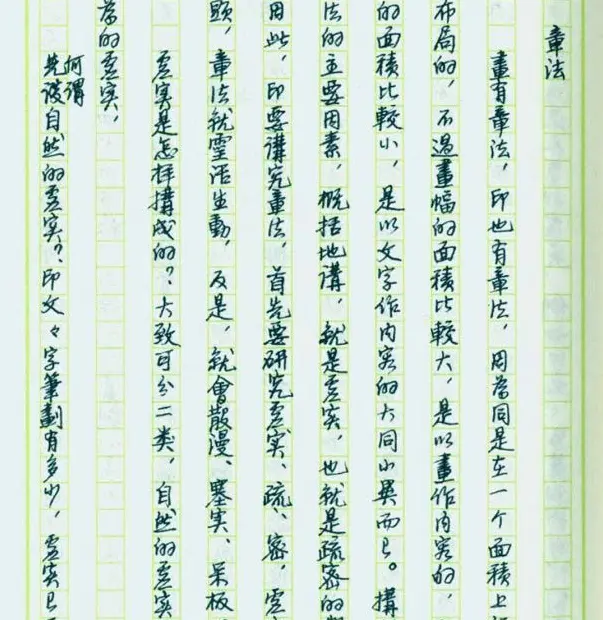 章法
畫有章法，印也有章法，因爲同是在一个面積上
布局的，不過畫幅的面積比較大，是以畫作内容的，
的面積比較小，是以文字作内容的大同小異而已。構
法的主要因素，概括地講，就是虚实，也就是疏密的
用此，印要講究章法，首先要研究虚实、疏、密，
題，章法就靈活生動，反是，就會散漫、塞实、呆板，
虚实是怎样構成的？大致可分二类，自然的虚实
爲的虚实，
何謂
先談自然的虚实？印文々字筆劃有多少，虚实已